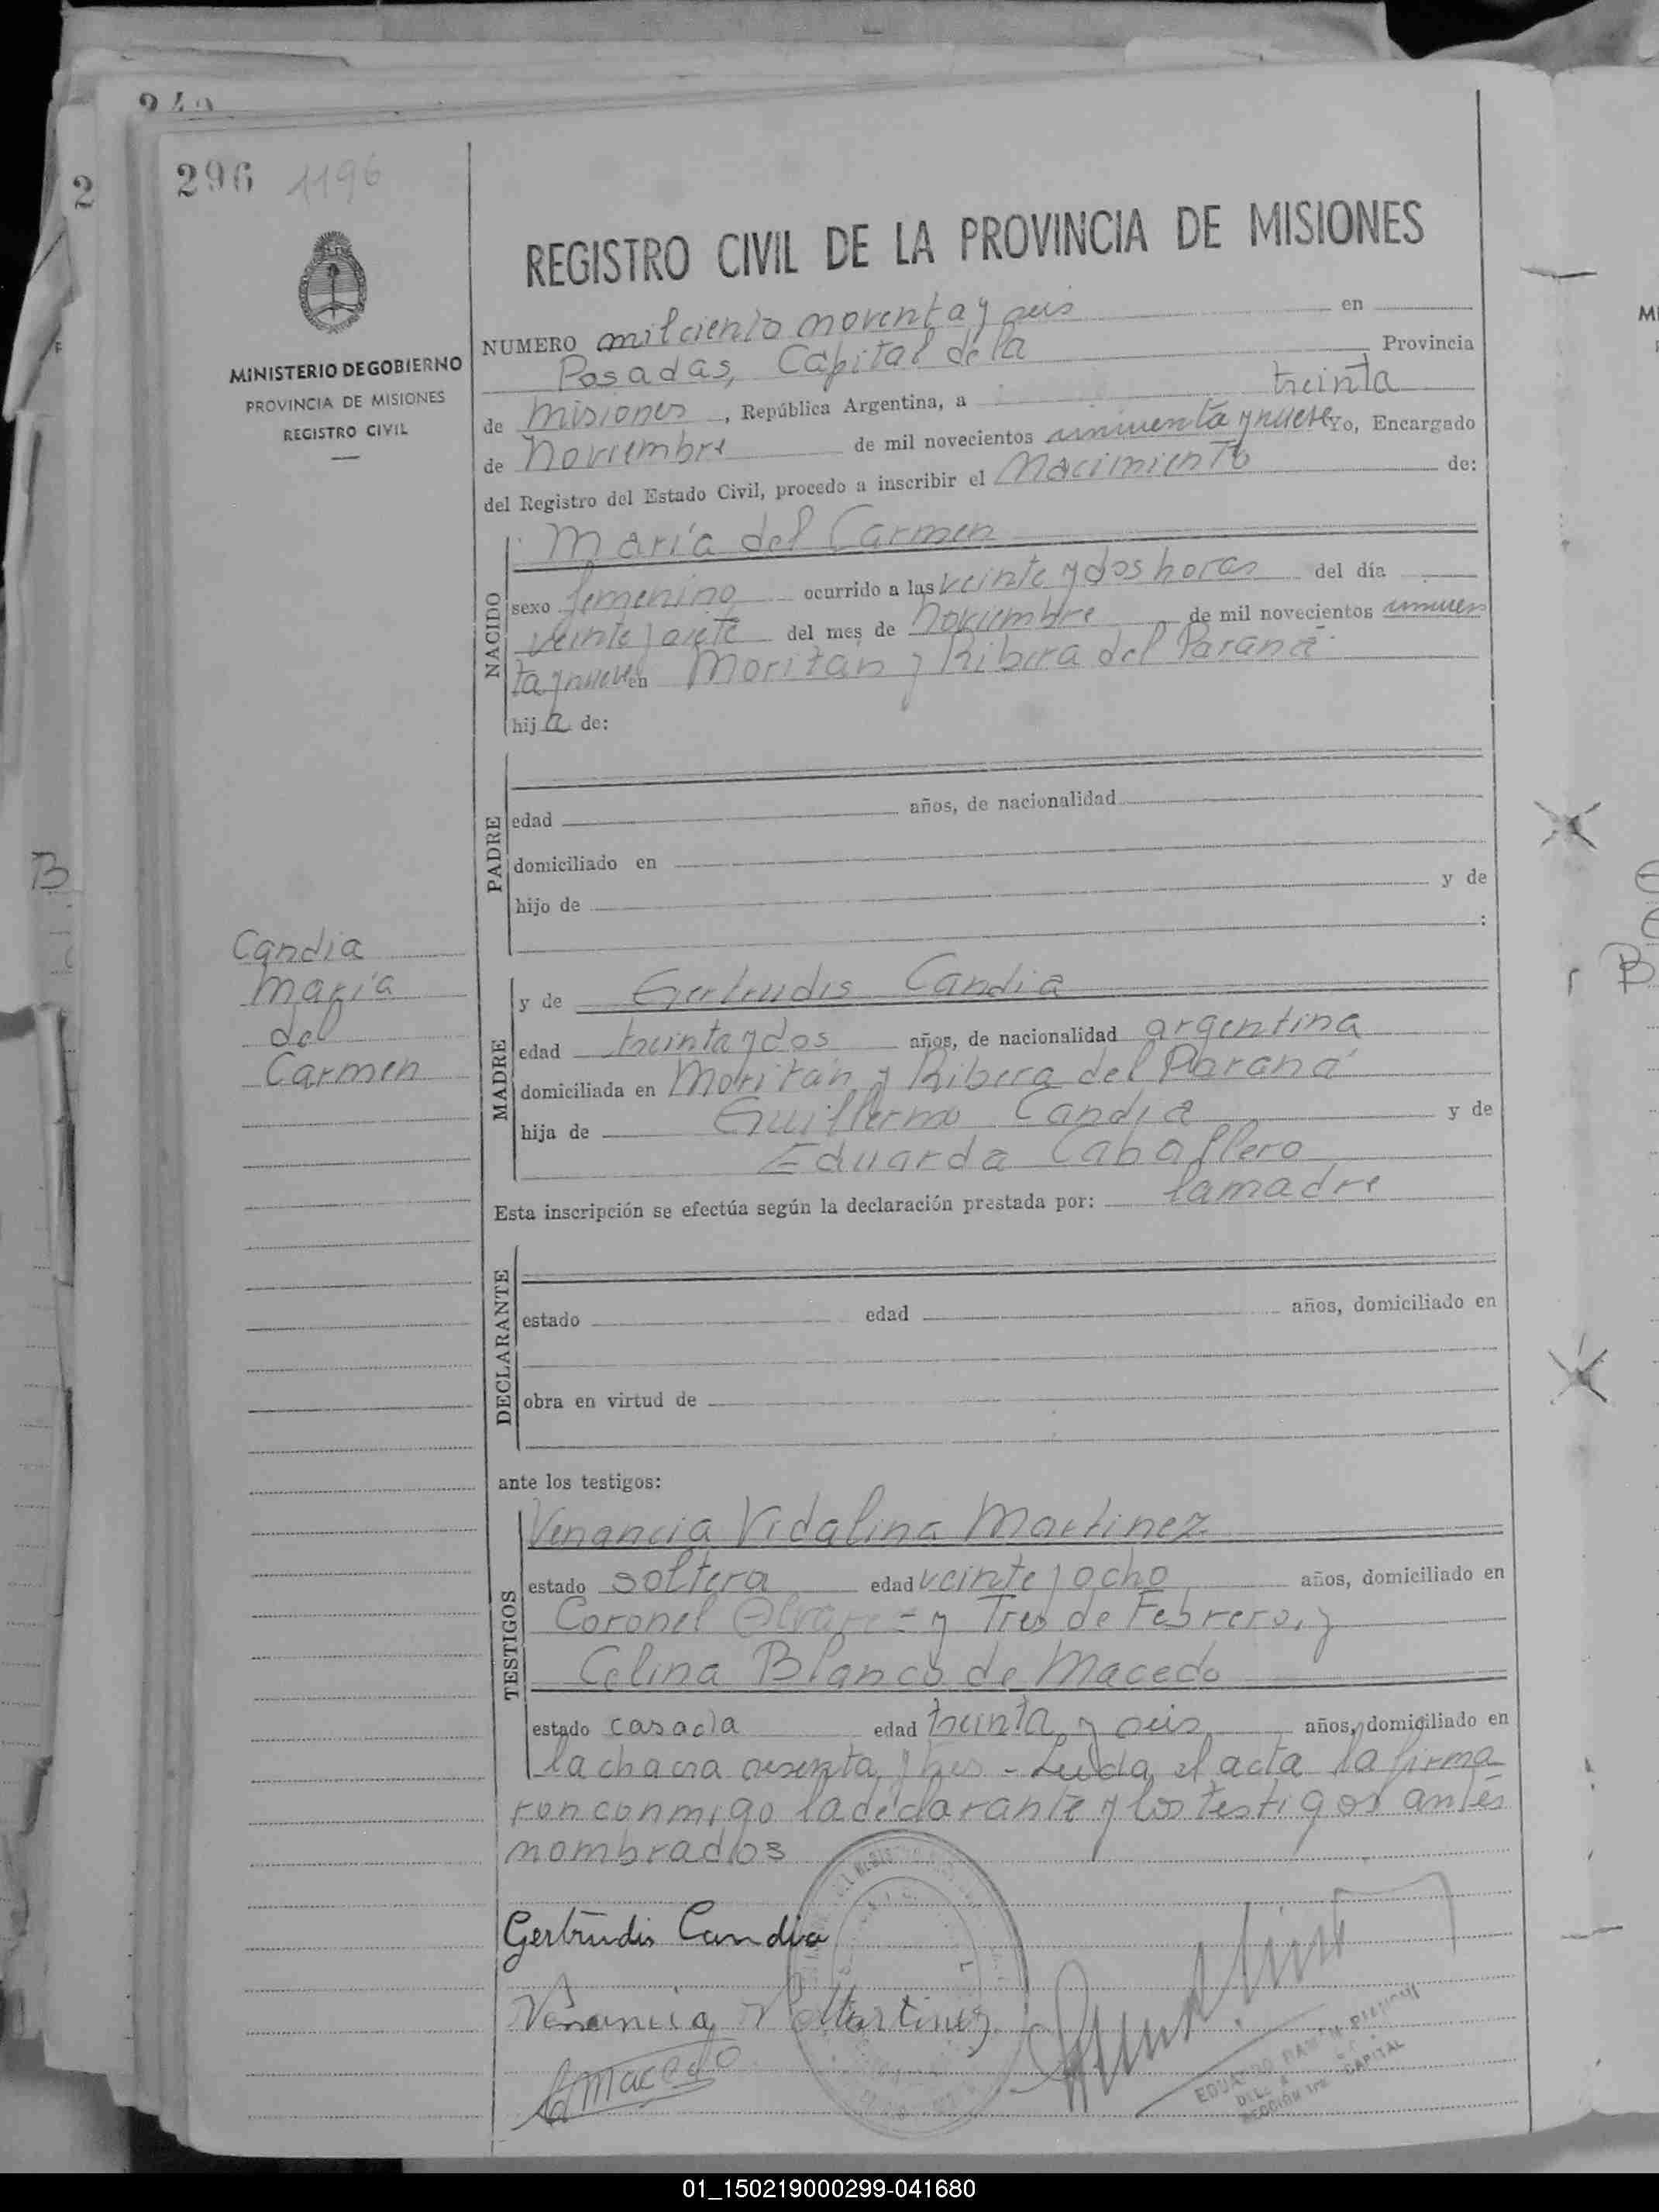 240
2
296 1196
MINISTERIO DE GOBIERNO
PROVINCIA DE MISIONES
REGISTRO CIVIL
REGISTRO CIVIL DE LA PROVINCIA DE MISIONES
NUMERO mil ciento noventa y seis en
Posadas, Capital de la Provincia
de Misiones, República Argentina, a treinta
de Noviembre de mil novecientos cincuenta y nueve Yo, Encargado
del Registro del Estado Civil, procedo a inscribir el Nacimiento de:
NACIDO
María del Carmen
sexo femenino ocurrido a las veinte y dos horas del día
veinte y siete del mes de Noviembre de mil novecientos cincuen
ta y nueve en Moritán y Ribera del Paraná
hija de:
PADRE
edad años, de nacionalidad
domiciliado en
hijo de y de
:
Candia
María
del
Carmen
MADRE
y de Gertrudis Candia
edad treinta y dos años, de nacionalidad argentina
domiciliada en Moritán y Ribera del Paraná
hija de Guillermo Candia y de
Eduarda Caballero
Esta inscripción se efectúa según la declaración prestada por: la madre
DECLARANTE
estado edad años, domiciliado en
obra en virtud de
ante los testigos:
TESTIGOS
Venancia Vidalina Martinez
estado soltera edad veinte y ocho años, domiciliado en
Coronel Alvarez y Tres de Febrero, y
Celina Blanco de Macedo
estado casada edad treinta y seis años, domiciliado en
la chacra sesenta y tres - Leída el acta la firma
ron conmigo la declarante y los testigos antes
nombrados
Gertrudis Candia
Venancia V Martinez
Macedo
EDUARDO RAMÓN BIANCHI
SECCIÓN 1ra. CAPITAL
B
B
01_150219000299-041680